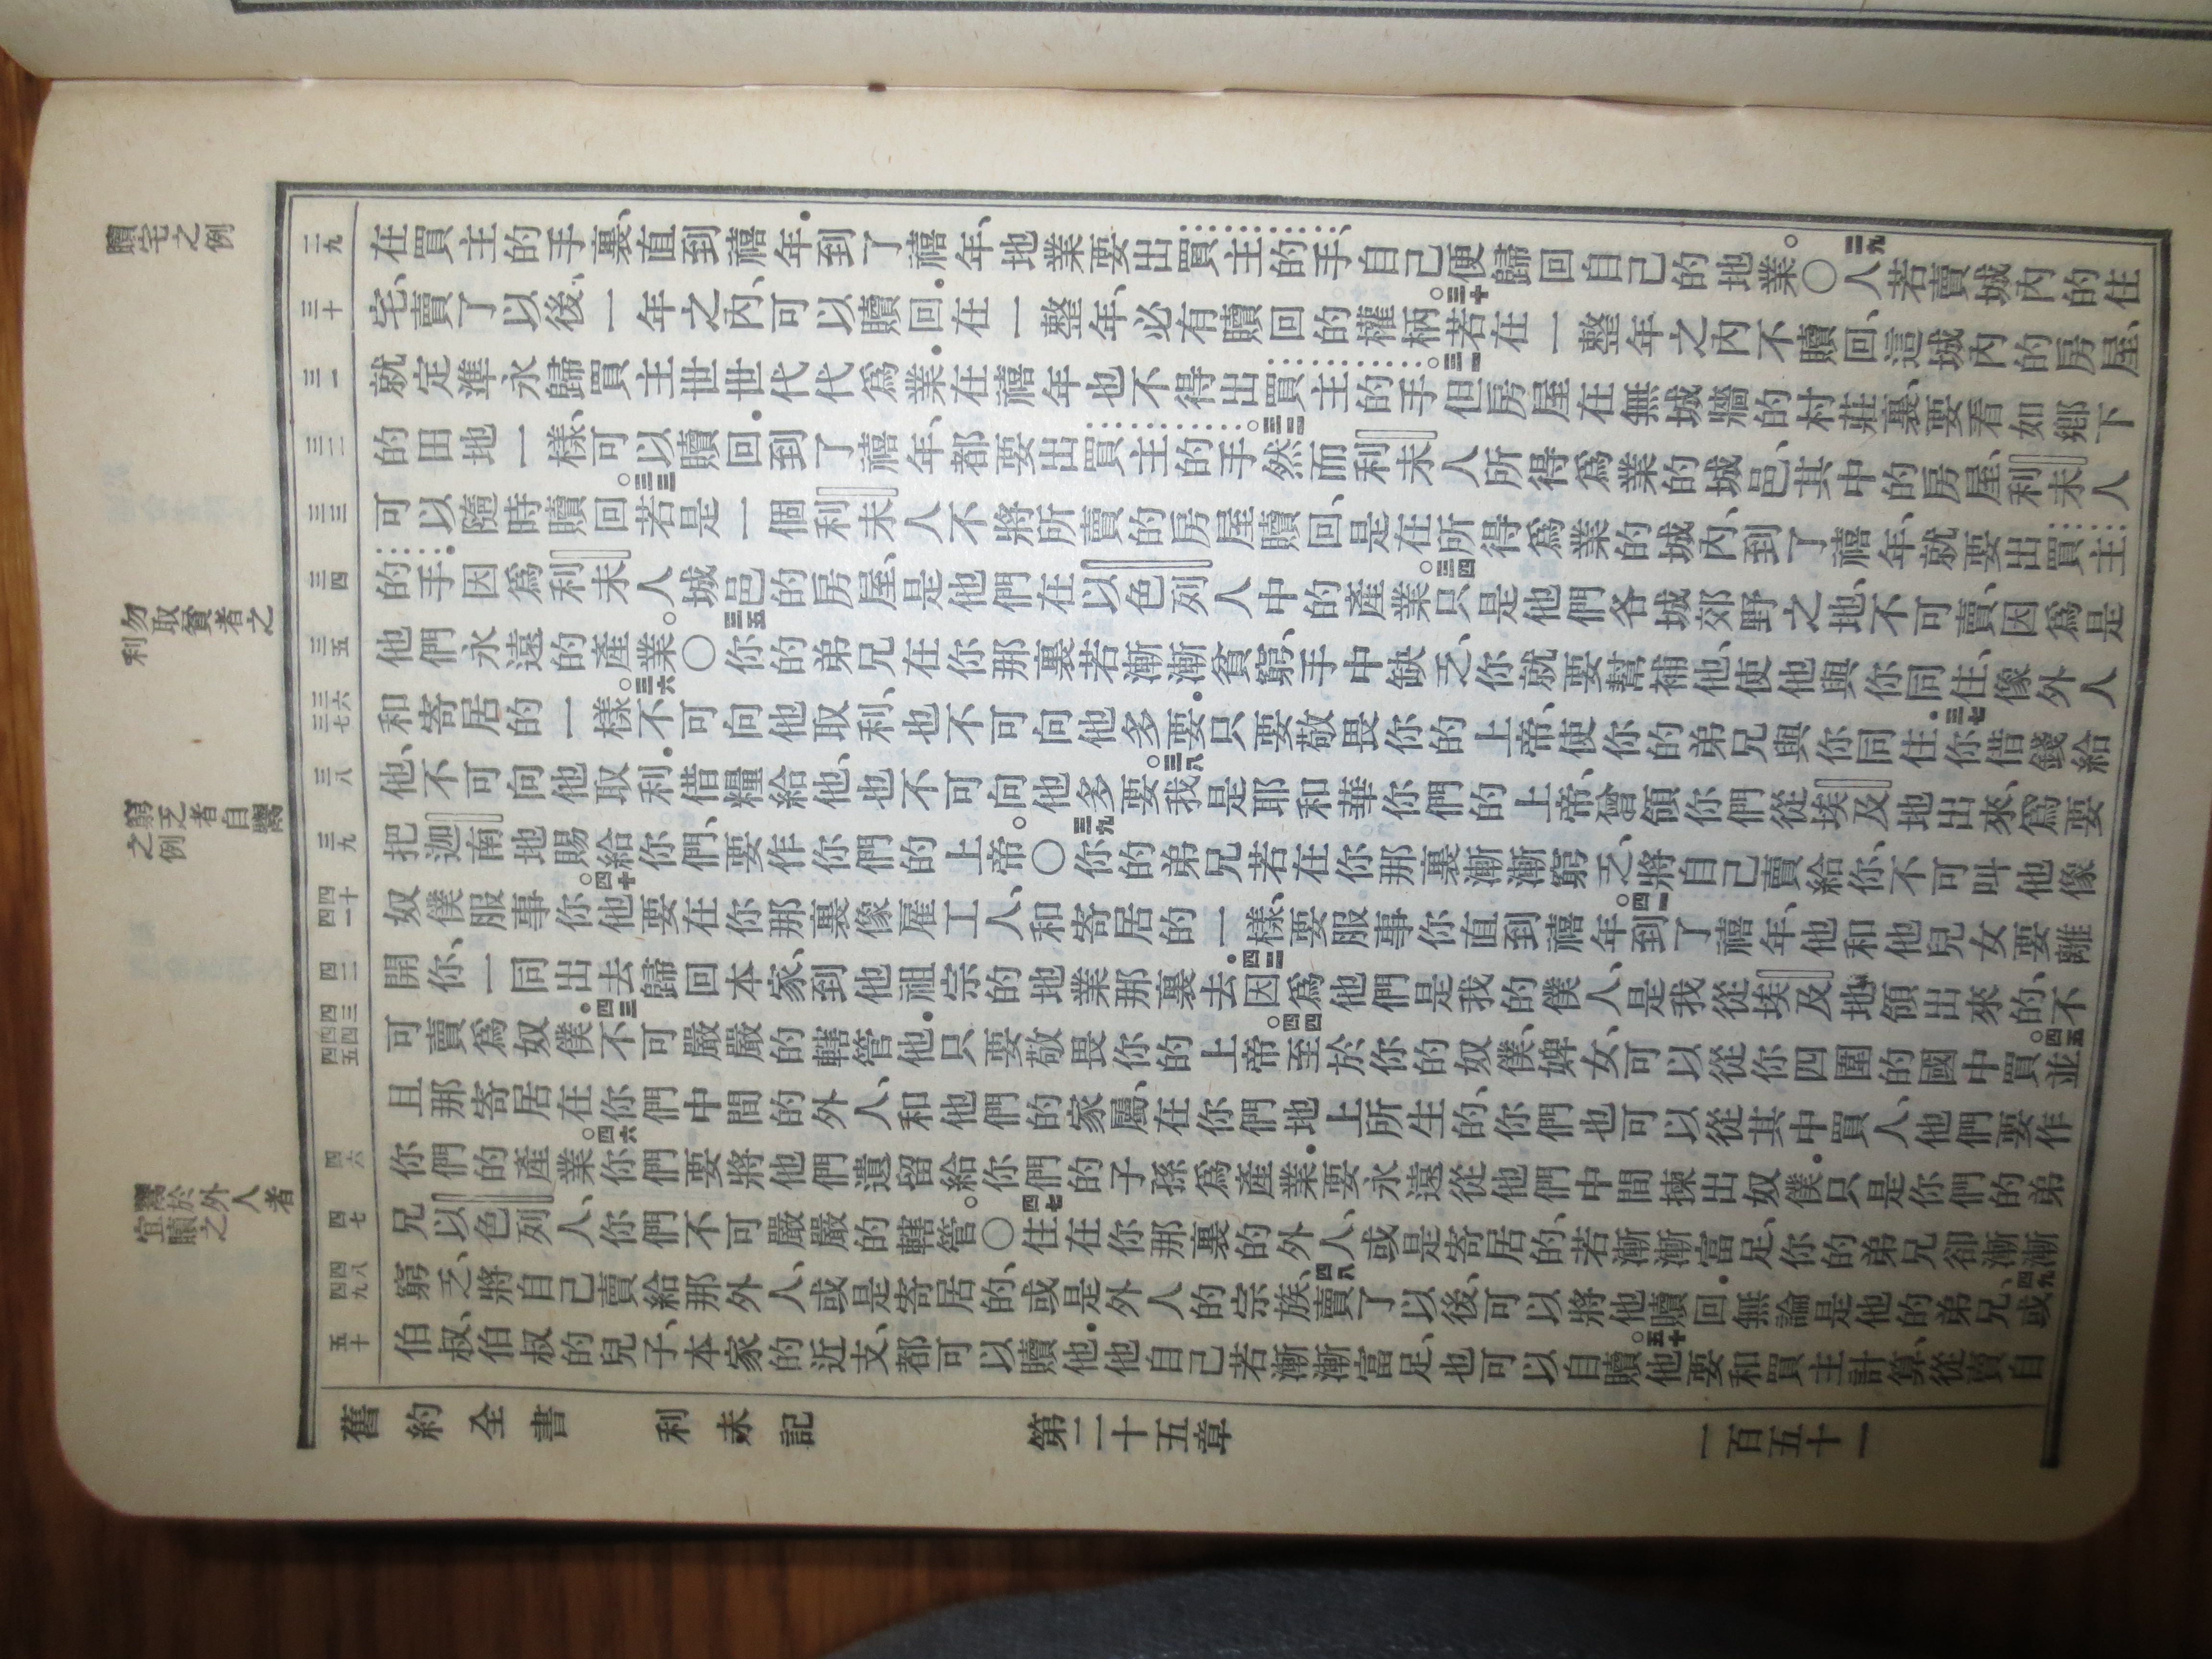 贖宅之例
勿取貧者之利
窮乏者自鬻之例
鬻於外人者宜贖之
二九
三十
三一
三二
三三
三四
三五
三六
三七
三八
三九
四十
四一
四二
四三
四四
四五
四六
四七
四八
四九
五十
在買主的手裏、直到禧年•到了禧年、地業要出買主的手、自己便歸回自己的地業。○二九人若賣城內的住
宅、賣了以後、一年之內、可以贖回•在一整年、必有贖回的權柄。三十若在一整年之內不贖回、這城內的房屋、
就定準永歸買主、世世代代爲業•在禧年也不得出買主的手。三一但房屋在無城牆的村莊裏、要看如鄉下
的田地一樣、可以贖回•到了禧年、都要出買主的手。三二然而利未人所得爲業的城邑、其中的房屋、利未人
可以隨時贖回。三三若是一個利未人不將所賣的房屋贖回、是在所得爲業的城內、到了禧年、就要出買主
的手•因爲利未人城邑的房屋、是他們在以色列人中的產業。三四只是他們各城郊野之地、不可賣、因爲是
他們永遠的產業。○三五你的弟兄在你那裏若漸漸貧窮、手中缺乏、你就要幫補他、使他與你同住、像外人
和寄居的一樣。三六不可向他取利、也不可向他多要•只要敬畏你的上帝、使你的弟兄與你同住•三七你借錢給
他、不可向他取利•借糧給他、也不可向他多要。三八我是耶和華你們的上帝、曾領你們從埃及地出來、爲要
把迦南地賜給你們、要作你們的上帝。○三九你的弟兄若在你那裏漸漸窮乏、將自己賣給你、不可叫他像
奴僕服事你。四十他要在你那裏像雇工人、和寄居的一樣、要服事你直到禧年。四一到了禧年、他和他兒女要離
開你、一同出去歸回本家、到他祖宗的地業那裏去•四二因爲他們是我的僕人、是我從埃及地領出來的、不
可賣爲奴僕•四三不可嚴嚴的轄管他•只要敬畏你的上帝。四四至於你的奴僕、婢女、可以從你四圍的國中買。四五並
且那寄居在你們中間的外人、和他們的家屬、在你們地上所生的、你們也可以從其中買人、他們要作
你們的產業。四六你們要將他們遺留給你們的子孫爲產業•要永遠從他們中間揀出奴僕•只是你們的弟
兄以色列人、你們不可嚴嚴的轄管。○四七住在你那裏的外人、或是寄居的、若漸漸富足、你的弟兄卻漸漸
窮乏、將自己賣給那外人、或是寄居的、或是外人的宗族、四八賣了以後、可以將他贖回•無論是他的弟兄、四九或
伯叔、伯叔的兒子、本家的近支、都可以贖他•他自己若漸漸富足、也可以自贖。五十他要和買主計算、從賣自
舊約全書　利未記　第二十五章　一百五十一